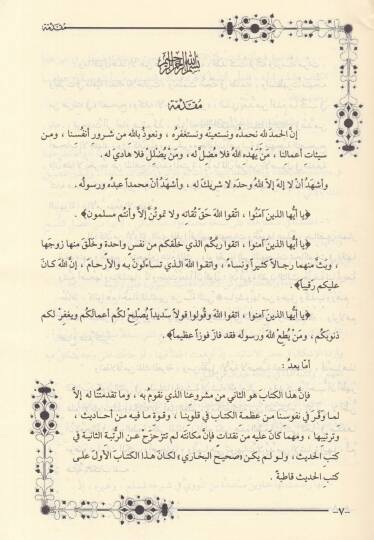 مقدمة
بسم الله الرحمن الرحيم
مقدمة
إنّ الحمدَ لله نحمدُه ونستعينُه ونستغفرُه ، ونعوذُ بالله من شرورِ أنفسِنا ، ومن
سيئاتِ أعمالنا ، مَنْ يَهْدِهِ اللهُ فلا مُضِلَّ له ، ومَنْ يُضْلِلْ فلا هاديَ له .
وأشهدُ أنْ لا إلهَ إلاَّ اللهُ وحدَه لا شريكَ له ، وأشهدُ أنّ محمداً عبدُه ورسولُه .
﴿يا أيُّها الذينَ آمنُوا ، اتّقُوا اللهَ حَقّ تُقَاتِه ولا تموتُنّ إلاَّ وأنتُم مسلمون﴾ .
﴿يا أيُّها الذينَ آمنُوا ، اتقُوا ربَّكُم الذي خلَقَكُم من نفسٍ واحدة وخَلَقَ منها زوجَها
، وبَثَّ منهما رجـالاً كثيراً ونساءً ، واتقـوا اللهَ الـذي تساءلـونَ بـه والأرحـامَ ، إنّ اللهَ كانَ
عليكم رَقِيباً﴾ .
﴿يا أيُّها الذينَ آمنُوا ، اتقُوا اللهَ وقُولُوا قولاً سَدِيداً يُصْلِحْ لكُم أعمالَكُم ويغفِرْ لكم
ذنوبَكُم ، ومَنْ يُطِعْ اللهَ ورسولَه فقد فازَ فوزاً عظيماً﴾ .
أمّا بعدُ :
فإنَّ هذا الكتابَ هو الثاني من مشروعِنا الذي نقومُ به ، وما تقدمتُنا له إلاَّ
لمـا وَقَرَ في نفوسِنا من عظمة الكتابِ في قلوبِنـا ، وقـوة مـا فيـه مـن أحـاديث ،
وترتيبِها ، ومهما كانَ عليه من نقداتٍ فإنَّ مكانَتَه لم تتزحزحْ عن الرُّتبةِ الثانيةِ في
كتبِ الحديثِ ، ولـو لم يكن «صحيحُ البخاري» لكـانَ هـذا الكتابُ الأولَ علـى
كتبِ الحديثِ قاطبةً .
-٧-